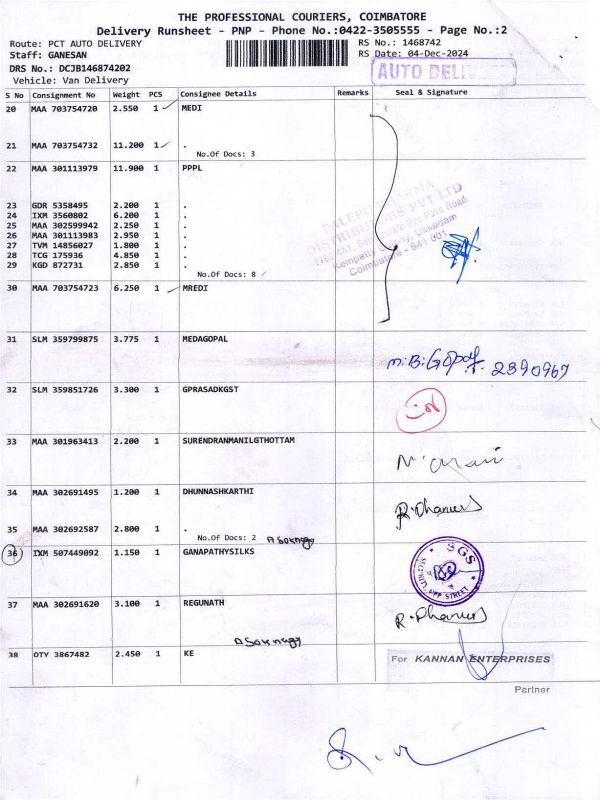 THE PROFESSIONAL COURIERS, COIMBATORE
Delivery Runsheet - PNP - Phone No.:0422-3505555 - Page No.:2
Route: PCT AUTO DELIVERY RS No.: 1468742
Staff: GANESAN RS Date: 04-Dec-2024
DRS No.: DCJB146874202
AUTO DELIVERY
Vehicle: Van Delivery
S No Consignment No Weight PCS Consignee Details Remarks Seal & Signature
20 MAA 703754720 2.550 1 MEDI
21 MAA 703754732 11.200 1 .
No.Of Docs: 3
22 MAA 301113979 11.900 1 PPPL
23 GDR 5358495 2.200 1 .
24 IXM 3560802 6.200 1 .
25 MAA 302599942 2.250 1 .
26 MAA 301113983 2.950 1 .
27 TVM 14856027 1.800 1 .
28 TCG 175936 4.850 1 .
29 KGD 872731 2.850 1 .
No.Of Docs: 8
PHARMA
DISTRIBUTORS PVT LTD
Coimbatore - 641 001
30 MAA 703754723 6.250 1 MREDI
31 SLM 359799875 3.775 1 MEDAGOPAL
M.B.Gopal 2390967
32 SLM 359851726 3.300 1 GPRASADKGST
33 MAA 301963413 2.200 1 SURENDRANMANILGTHOTTAM
34 MAA 302691495 1.200 1 DHUNNASHKARTHI
35 MAA 302692587 2.800 1 .
No.Of Docs: 2
36 IXM 507449092 1.150 1 GANAPATHYSILKS
SGS
OPP STREET
37 MAA 302691620 3.100 1 REGUNATH
38 OTY 3867482 2.450 1 KE
For KANNAN ENTERPRISES
Partner